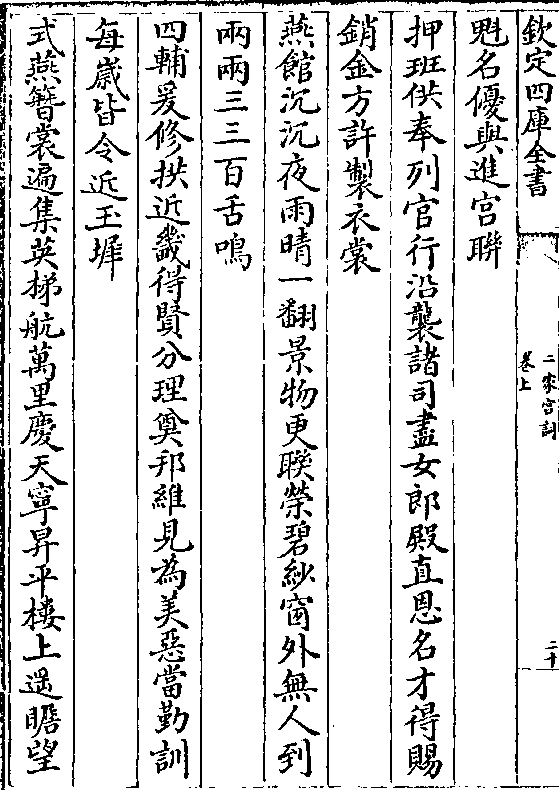 欽定四庫全書
二家宮詞
卷上
二十
魁名優與進宮聯
押班供奉列官行沿襲諸司盡女郎殿直恩名才得賜
銷金方許製衣裳
燕館沉沉夜雨晴一翻景物更聨榮碧紗窗外無人到
兩兩三三百舌鳴
四輔爰修拱近畿得賢分理奠邦維見為美惡當勤訓
每嵗皆令近玉墀
式燕簪裳遍集英梯航萬里慶天寧昇平樓上遥瞻望